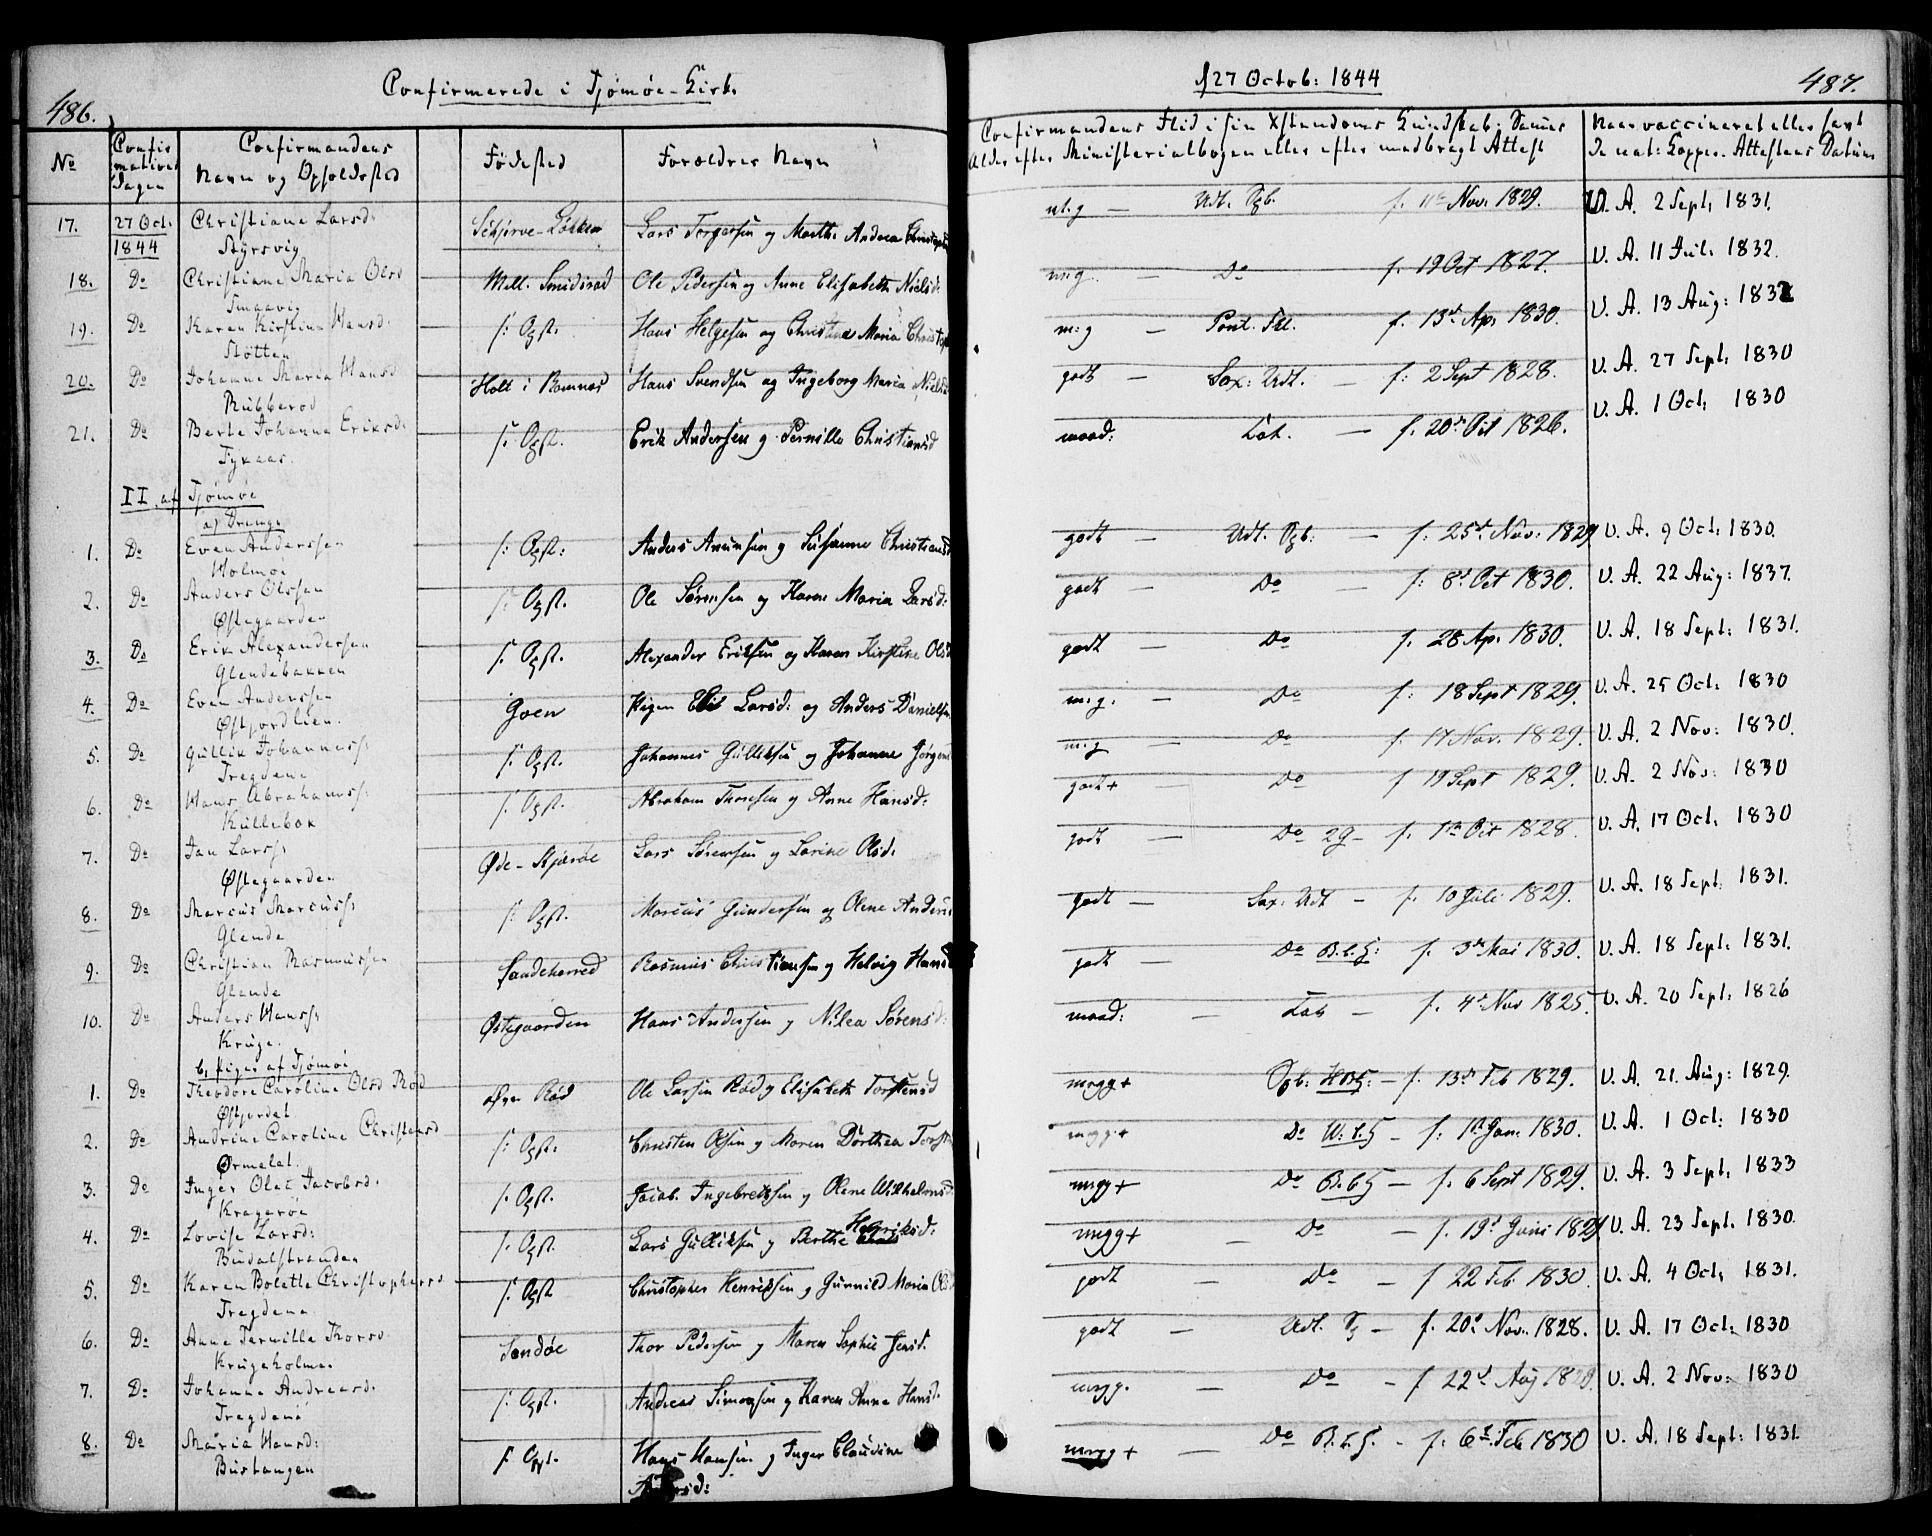 486.
Confirmerede i Tjømøe-Kirk.
No
Confirmations Dagen
Confirmandens Navn og Opholdssted
Fødested
Forældres Navn
17. 27 Oct. 1844 Christiane Larsd: Lars Torgersen og Marthe Andrea
18. Do Christiane Maria Olsd Ole Pedersen og Anne Elisabeth Nielsd:
19. Do Karen Kirstine Hansd: f: Opst. Hans Helgesen og Christine Maria
20. Do Johanne Maria Hansd Holt i Ramnæs Hans Svendsen og Ingeborg Maria Nielsd
Rubberød
21. Do Berte Johanne Eriksd: f: Opst. Erik Andersen og Pernille Christiansd
II. af Tjømøe
a) Drenge
1. Do Even Anderssen f: Opst: Anders Amunsen og Susanne Christiansd
Holmen
2. Do Anders Olssen f: Opst. Ole Sørensen og Karen Maria Larsd:
Østegaarden
3. Do Erik Alexandersen f. Opst. Alexander Eriksen og Karen Kirstine Olsd
Glendebakken
4. Do Even Anderssen Goen Pigen Larsd: og Anders Danielsen
Østjordlien.
5. Do Gullik Johanness: f. Opst. Johannes Gulliksen og Johanne
Tregdene
6. Do Hans Abrahamss: f. Opst. Abraham Thoresen og Anne Hansd:
Kullebok
7. Do Jan Larss: Øde-Kjærøe Lars Sørensen og Larine Olsd:
Østegaarden
8. Do Marcus Marcuss: f: Opst. Marcus Gundersen og Olene
Glende
9. Do Christian Rasmussen Sandeherred Rasmus Christiansen og Helvig
Glende
10. Do Anders Hanss: Østegaarden Hans Andersen og Nilea Sørensd:
Kruge.
b, Piger af Tjømøe
1. Do Theodore Caroline Olsd Rød Øvre Rød Ole Larsen Rød og Elisabeth Torstensd
2. Do Andrine Caroline Christensd f: Opst. Christen Olsen og Maren Dorthea
Ørmelet.
3. Do Inger Olea Jacobsd. f. Opst. Jacob Ingebretsen og Olene Wilhelmsd.
Kragerøe
4. Do Lovise Larsd: f. Opst. Lars Gulliksen og Berthe Henriksd:
Budalstranden
5. Do Karen Bolette Christophersd f: Opst Christopher Henriksen og Gunnild Maria
Tregdene
6. Do Anne Pernille Thorsd Sandøe Thor Pedersen og Maren Sophie Jensd.
Krugeholme.
7. Do Johanne Andreasd. f: Opst. Andreas Simonsen og Karen Anne Hansd.
Tregdene
8. Do Maria Hansd: f. Opst. Hans Hansen og Inger Claudine
Bustangen
d 27 Octob: 1844
487.
Confirmandens Flid i sin Xstendoms Kundskab; Sammes
Alder efter Ministerialbogen eller efter medbragt Attest
Naar vaccineret eller havt
de nat: Kopper. Attestens Datum
m:g — Udt. Fgb. f. 11te Nov. 1829. V. A. 2 Sept. 1831.
m:g. — Do f. 19 Oct 1827. V. A. 11 Jul. 1832.
m:g — Pont. f. 13de Ap. 1830. V. A. 13 Aug: 1832
godt — Sax: Udt. — f: 2 Sept 1828. V. A. 27 Sept. 1830
maad: — f. 20de Oct 1826. V. A. 1 Oct. 1830
godt — Udt. — f: 25de Nov: 1829 V. A. 9 Oct: 1830.
godt — Do — f: 8de Oct 1830. V. A. 22 Aug: 1837.
godt — Do f. 28 Ap. 1830. V. A. 18 Sept: 1831.
m:g. — Do f: 18 Sept 1829. V. A. 25 Oct: 1830
m:g — Do f. 17 Nov. 1829. V. A. 2 Nov: 1830.
godt+ Do f 19 Sept 1829. V. A. 2 Nov: 1830
godt — Do — f. 1ste Oct 1828. V. A. 17 Oct. 1830
godt — Sax: Udt — f. 10 Juli 1829. V. A. 18 Sept. 1831.
godt — Do f. 3de Mai 1830. V. A. 18 Sept. 1831.
maad: — f. 4de Nov 1825. V. A. 20 Sept. 1826
megg+ f. 13de Feb 1829. V. A. 21. Aug: 1829.
megg.+ Do f: 1ste Jan. 1830. V. A. 1 Oct: 1830
megg+ Do — f. 6 Sept 1829. V. A. 3 Sept. 1833
megg+ Do — f. 19de Juni 1829 V. A. 23 Sept. 1830.
godt — Do — f 22 Feb 1830. V. A. 4 Oct. 1831.
godt — Udt. — f. 20de Nov. 1828. V. A. 17 Oct: 1830
megg. — Do — f 22de Aug 1829. V. A. 2 Nov: 1830
megg+ — Do — f: 6te Feb 1830 V. A. 18 Sept: 1831